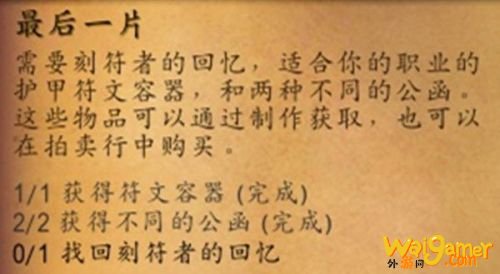 最后一片
需要刻符者的回忆，适合你的职业的
护甲符文容器，和两种不同的公函。
这些物品可以通过制作获取，也可以
在拍卖行中购买。
1/1 获得符文容器 (完成)
2/2 获得不同的公函 (完成)
0/1 找回刻符者的回忆
Waigamer
外游网.com